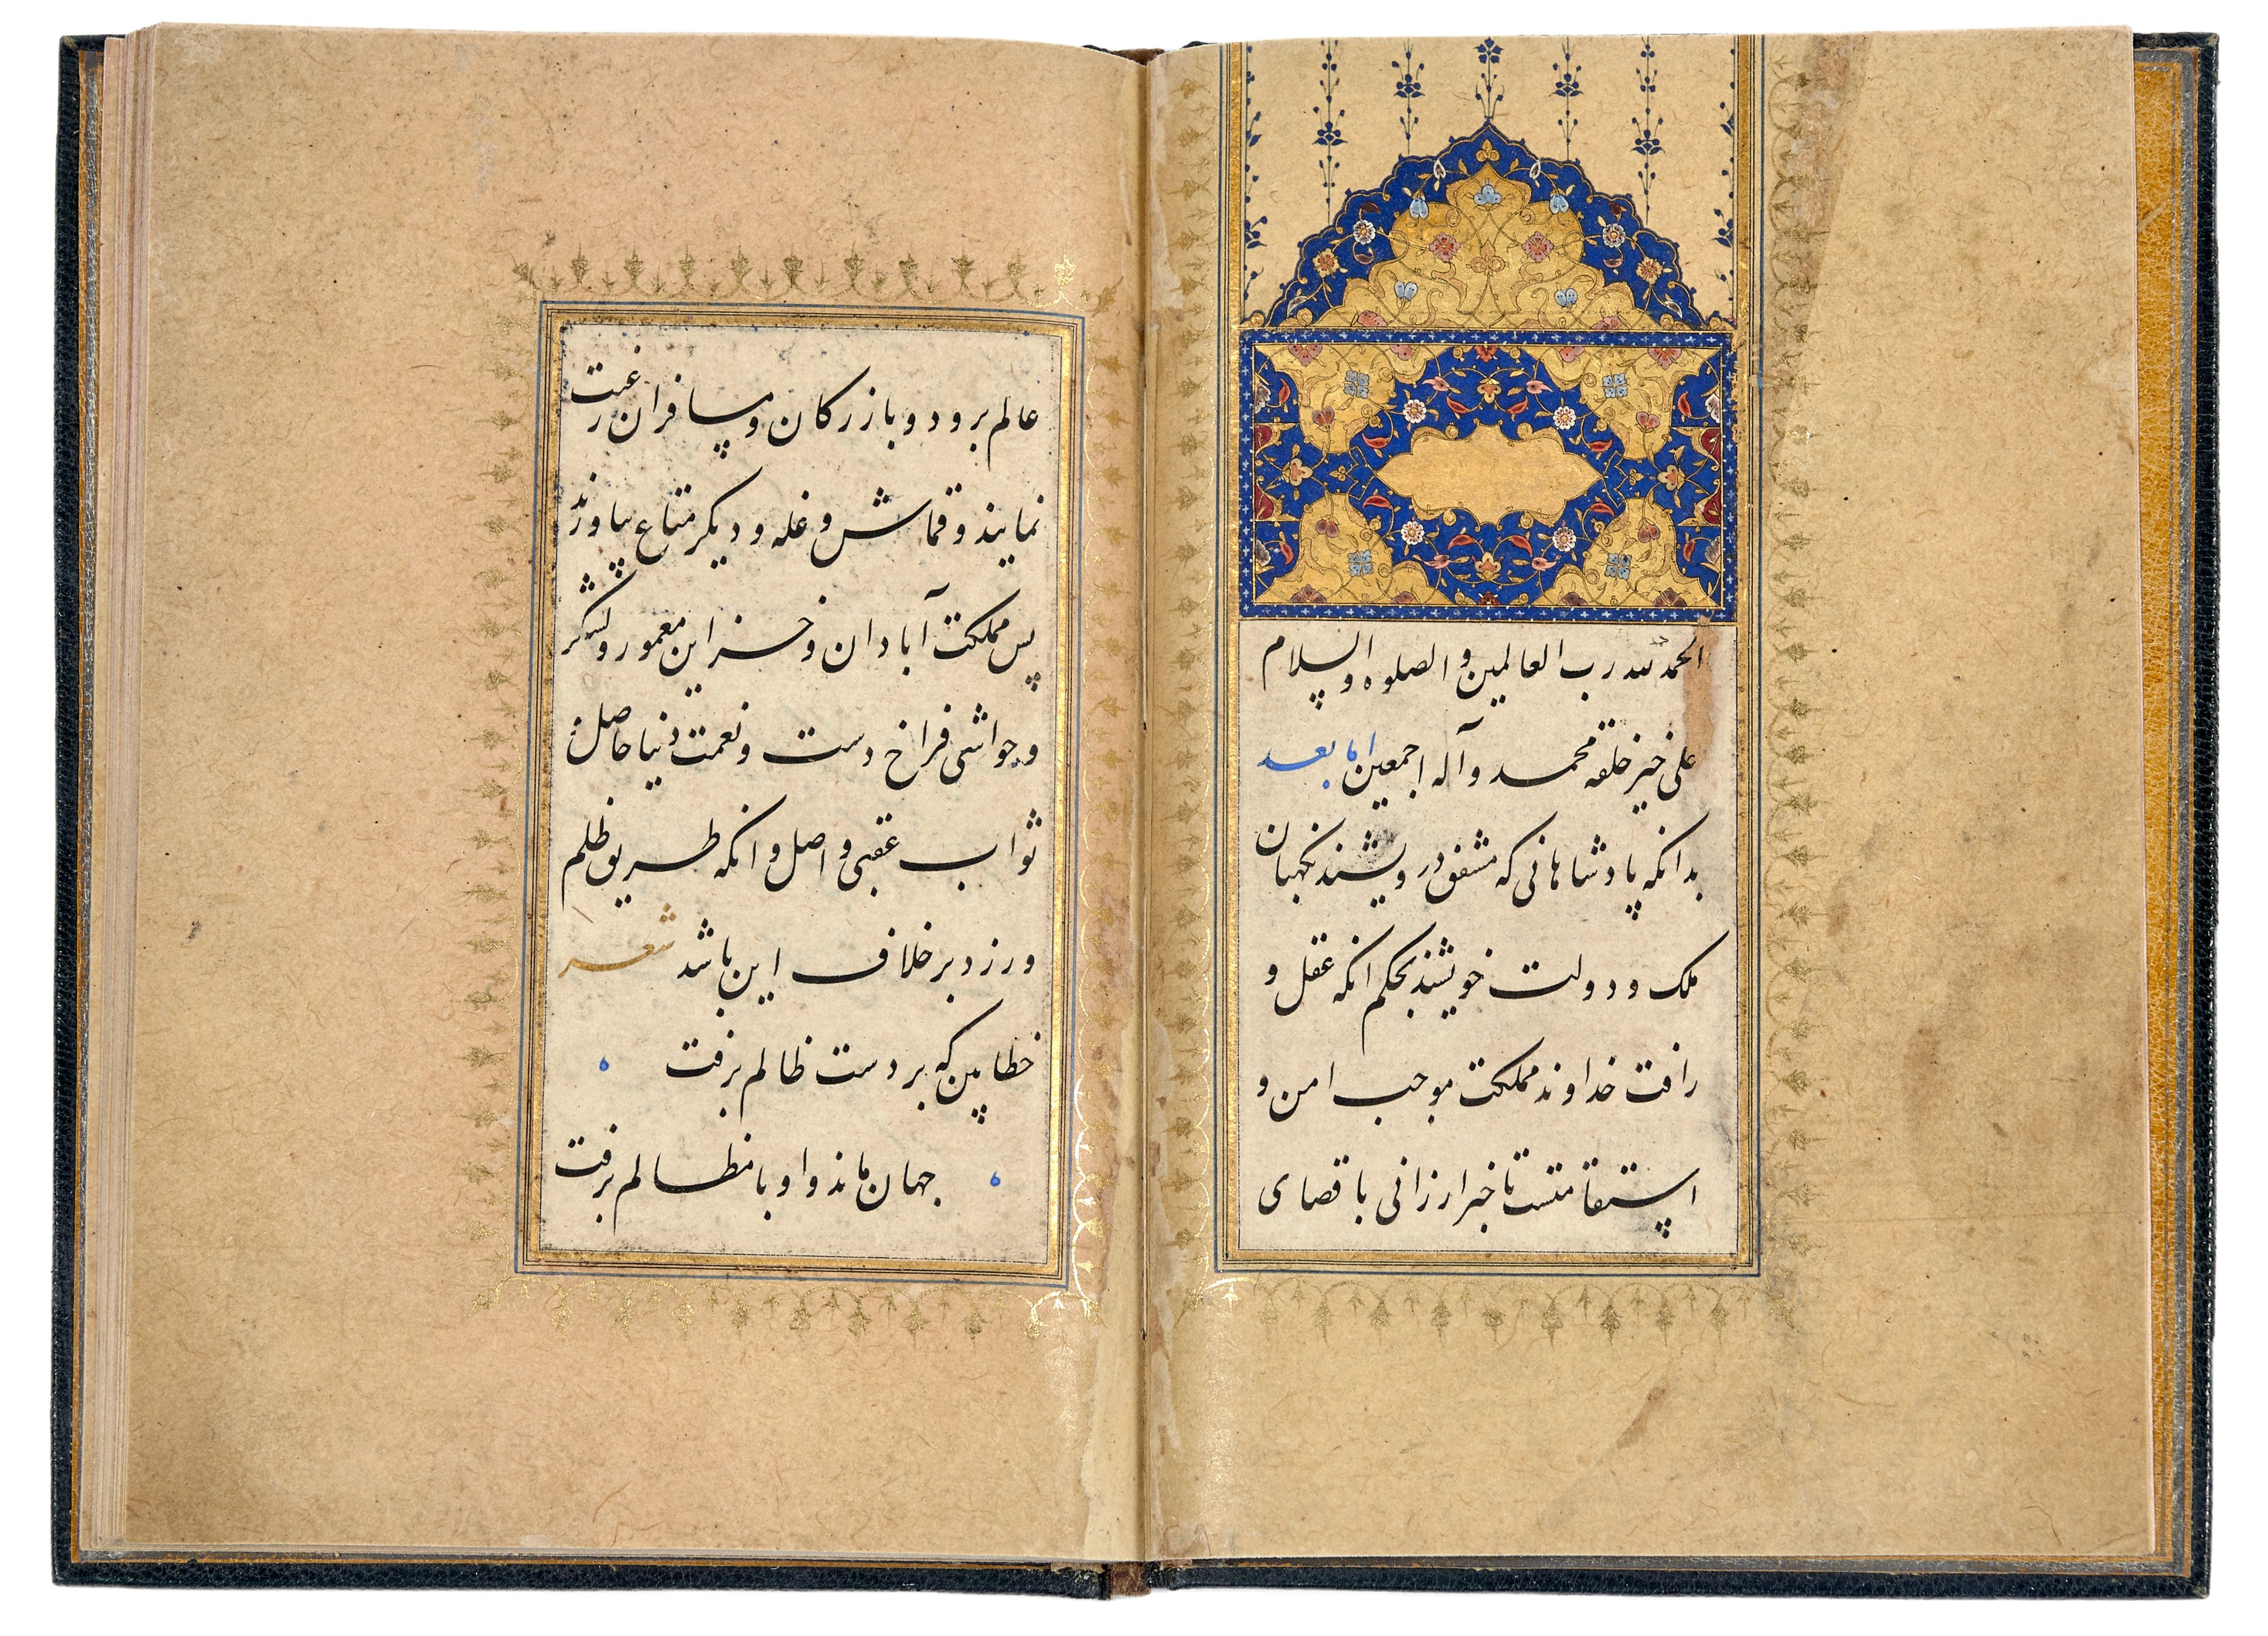 الحمد لله رب العالمین و الصلوه و السلام
علی خیر خلقه محمد و آله اجمعین اما بعد
بدانکه پادشاهانی که مشفق درویشند نکهبان
ملک و دولت خویشند بحکم انکه عقل و
رافت خداوند مملکت موجب امن و
استقامتست تا خبر ارزانی باقصای
عالم برود و بازرکان و مسافران رغبت
نمایند و قماش و غله و دیکر متاع بیاورند
پس مملکت آبادان و خزاین معمور و لشکر
و حواشی فراخ دست و نعمت دنیا حاصل و
ثواب عقبی واصل و انکه طریق ظلم
ورزد بر خلاف این باشد شعر
خطا بین که بر دست ظالم برفت
جهان ماند و او با مظالم برفت